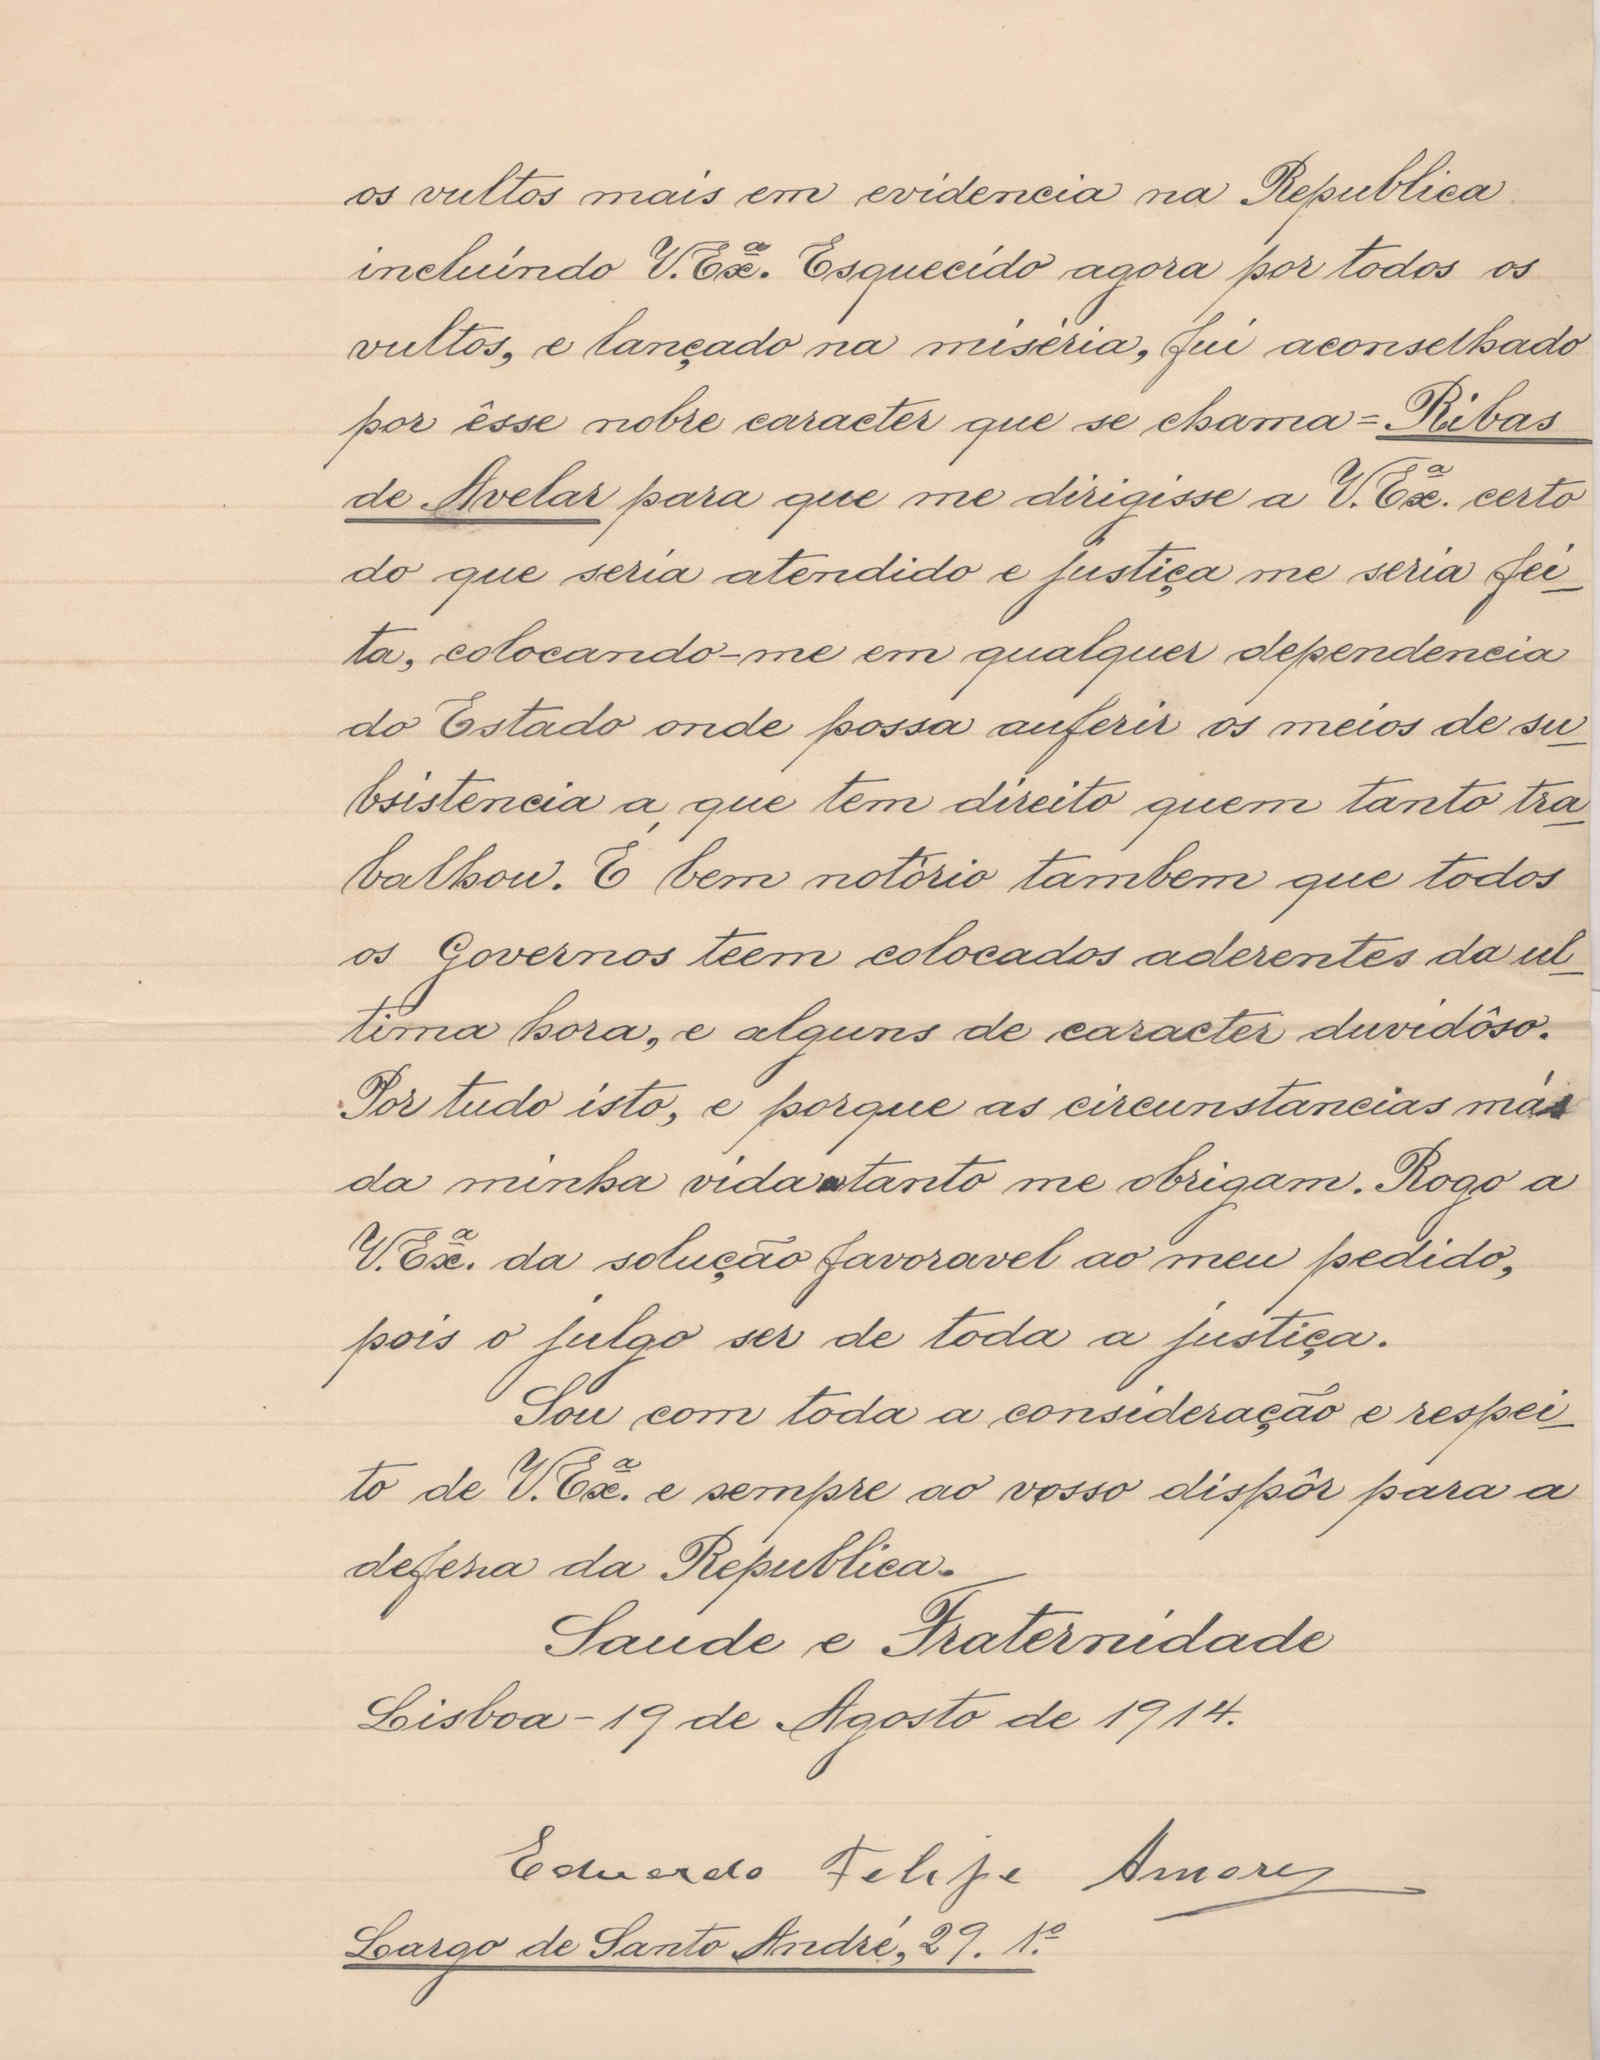 os vultos mais em evidencia na Republica
incluindo V. Exª. Esquecido agora por todos os
vultos, e lançado na miséria, fui aconselhado
por êsse nobre caracter que se chama = Ribas
de Avelar para que me dirigisse a V. Exª. certo
do que seria atendido e justiça me seria fei_
ta, colocando-me em qualquer dependencia
do Estado onde possa auferir os meios de su_
bsistencia a que tem direito quem tanto tra_
balhou. É bem notório tambem que todos
os Governos teem colocados aderentes da ul_
tima hora, e alguns de caracter duvidôso.
Por tudo isto, e porque as circunstancias más
da minha vida a tanto me obrigam. Rogo a
V. Exª. da solução favoravel ao meu pedido,
pois o julgo ser de toda a justiça.
Sou com toda a consideração e respei_
to de V. Exª. e sempre ao vosso dispôr para a
defesa da Republica.
Saude e Fraternidade
Lisboa - 19 de Agosto de 1914.
Eduardo Felipe Amores
Largo de Santo André, 29. 1º.